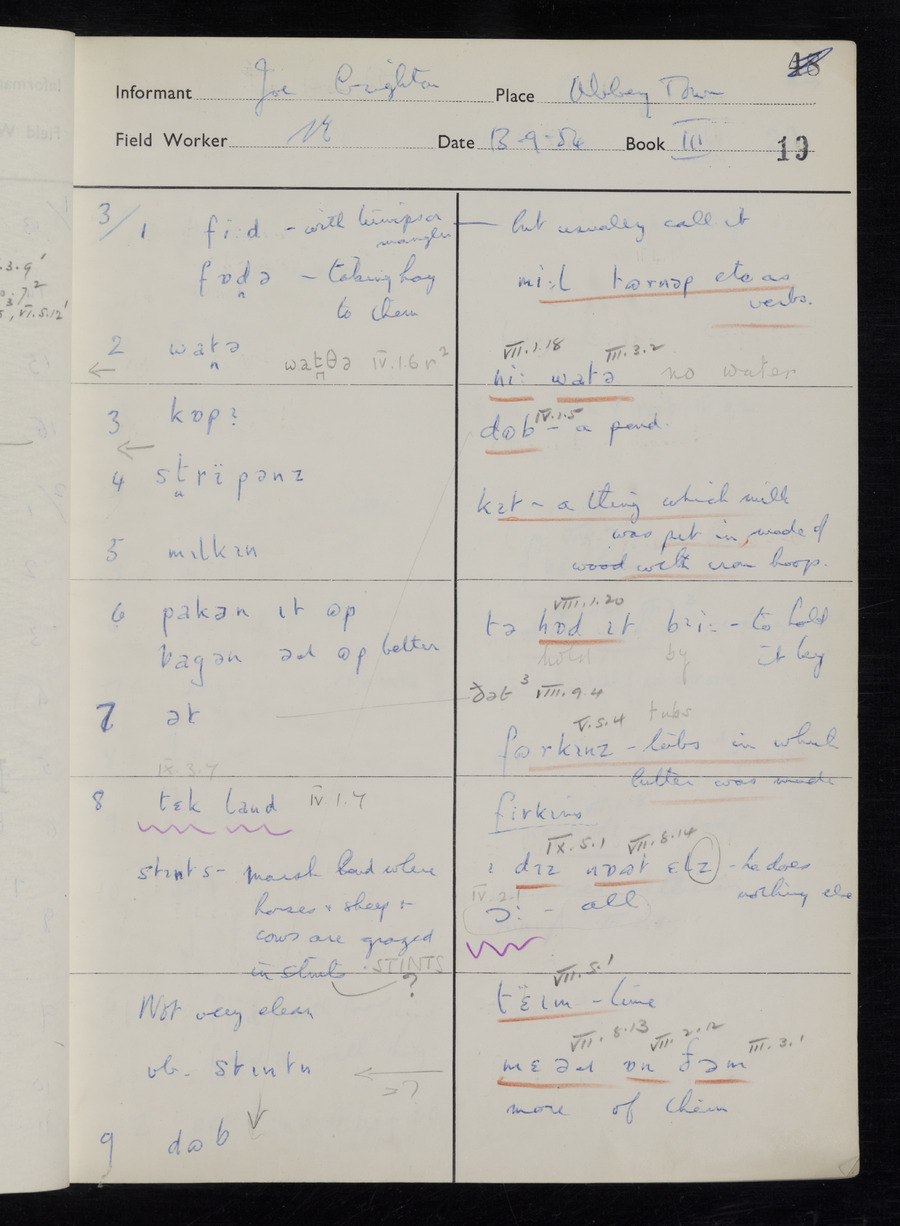 Informant Joe Creighton Place Abbey Town
Field Worker Date 13-9-54 Book III 19
3/1 fi:d - with turnips or mangles
fɒdə - taking hay
to them
2 watə watθə IV.1.6 r²
3 kɒp
4 strïpənz
5 mɪlkɪn
6 pakən ɪt ɒp
bagən əd ɒp better
7 ət
IX.3.7
8 tɛk land IV.1.7
stɪnts - marsh land where
horses + sheep +
cows are grazed
in stints . STINTS
?
Not very clean
vb. stɪntn
=?
9 dɷb
but usually call it
mi:l tərnəp etc as
verbs.
VII.1.18 III.3.2
ni: watə no water
dɷb IV.1.5 - a pond.
kɪt - a thing which milk
was put in, made of
wood with iron hoops.
VIII.1.20
tə hɒd ɪt bɪi: - to hold
hold by it by
ðət ³ VIII.9.4
V.5.4 tubs
fərkɪnz - tubs in which
butter was made
firkins
IX.5.1 VII.8.14
ɪ dɪz nɒɷt ɛlz - he does
nothing else
IV.2.1
ɔ: - all
VII.5.1
tɛ̈ɪm - time
VII.8.13 VII.2.12 III.3.1
mɛəɹ ɒn ðəm
more of them